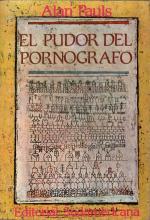 Alan Pauls
EL PUDOR DEL
PORNOGRAFO
Editorial Sudamericana